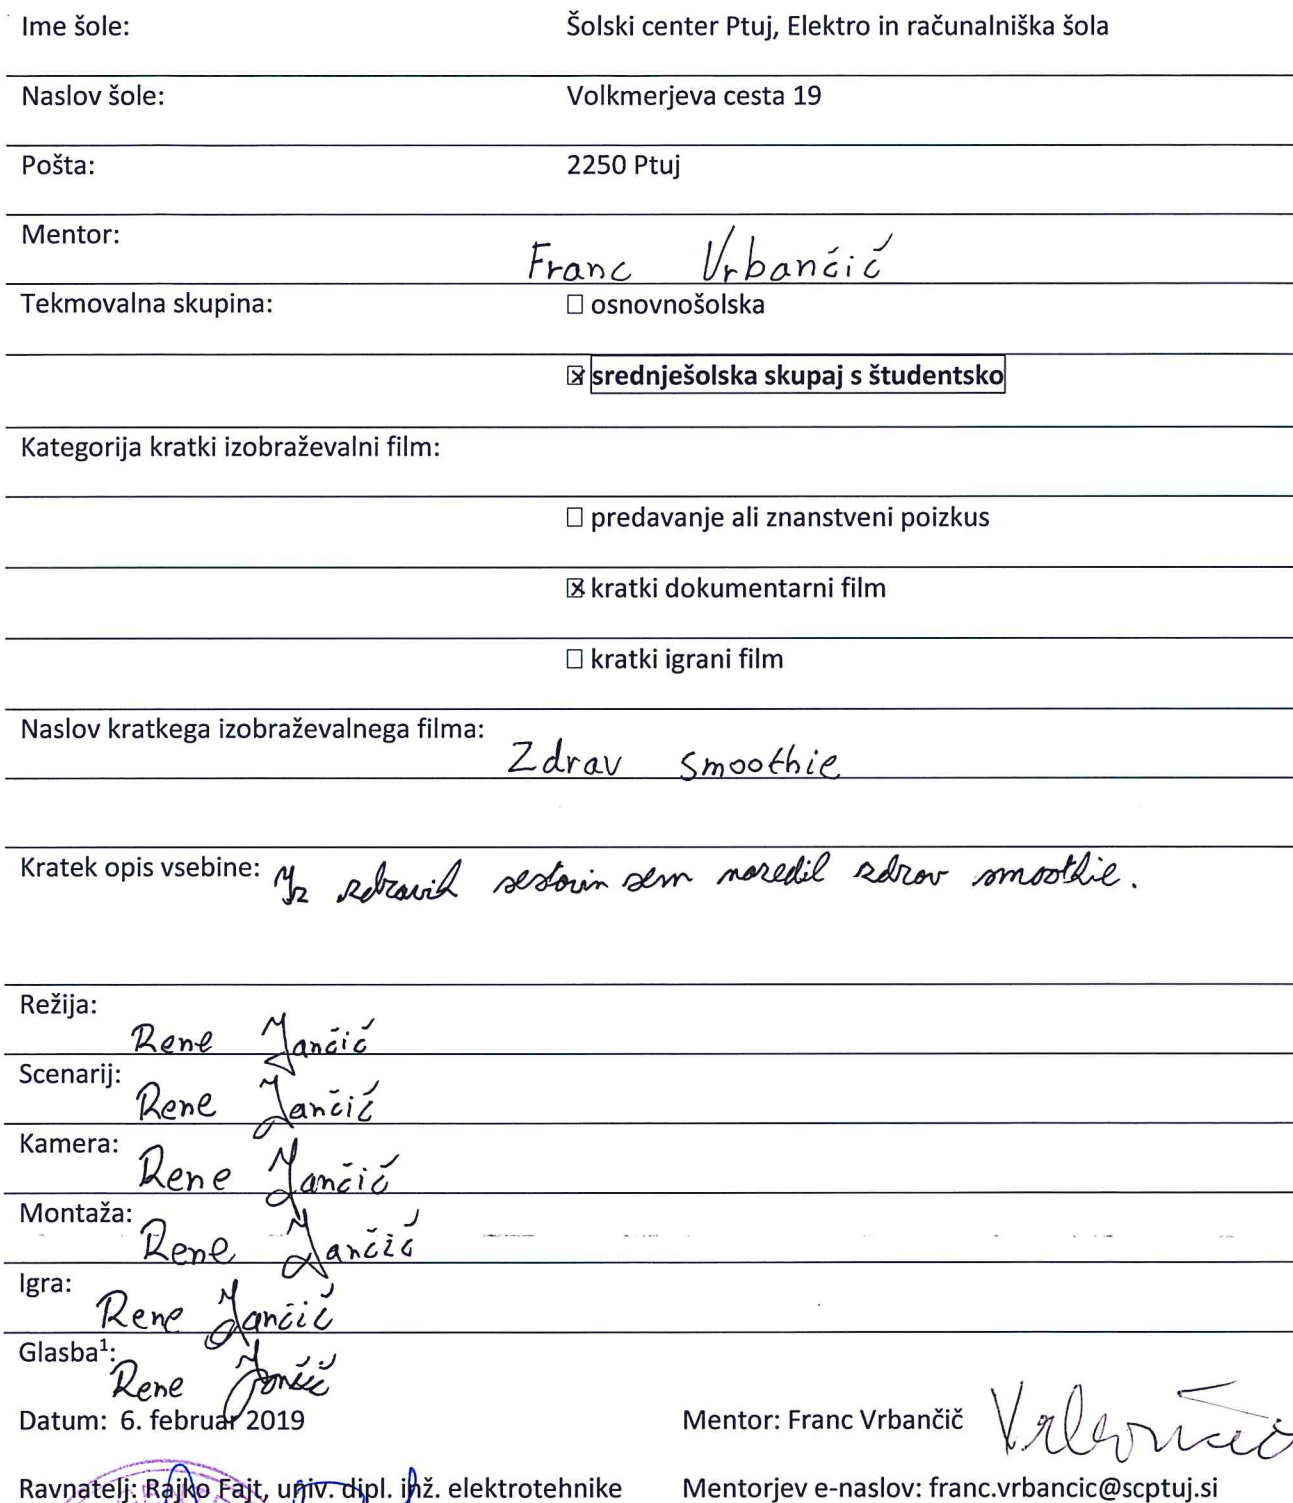 Ime šole: Šolski center Ptuj, Elektro in računalniška šola
Naslov šole: Volkmerjeva cesta 19
Pošta: 2250 Ptuj
Mentor: Franc Vrbančič
Tekmovalna skupina: ☐ osnovnošolska
☒ srednješolska skupaj s študentsko
Kategorija kratki izobraževalni film:
☐ predavanje ali znanstveni poizkus
☒ kratki dokumentarni film
☐ kratki igrani film
Naslov kratkega izobraževalnega filma: Zdrav smoothie
Kratek opis vsebine: Iz zdravih sestavin sem naredil zdrav smoothie.
Režija: Rene Jančič
Scenarij: Rene Jančič
Kamera: Rene Jančič
Montaža: Rene Jančič
Igra: Rene Jančič
Glasba¹: Rene Jančič
Datum: 6. februar 2019 Mentor: Franc Vrbančič Vrbančič
Ravnatelj: Rajko Fajt, univ. dipl. inž. elektrotehnike Mentorjev e-naslov: franc.vrbancic@scptuj.si